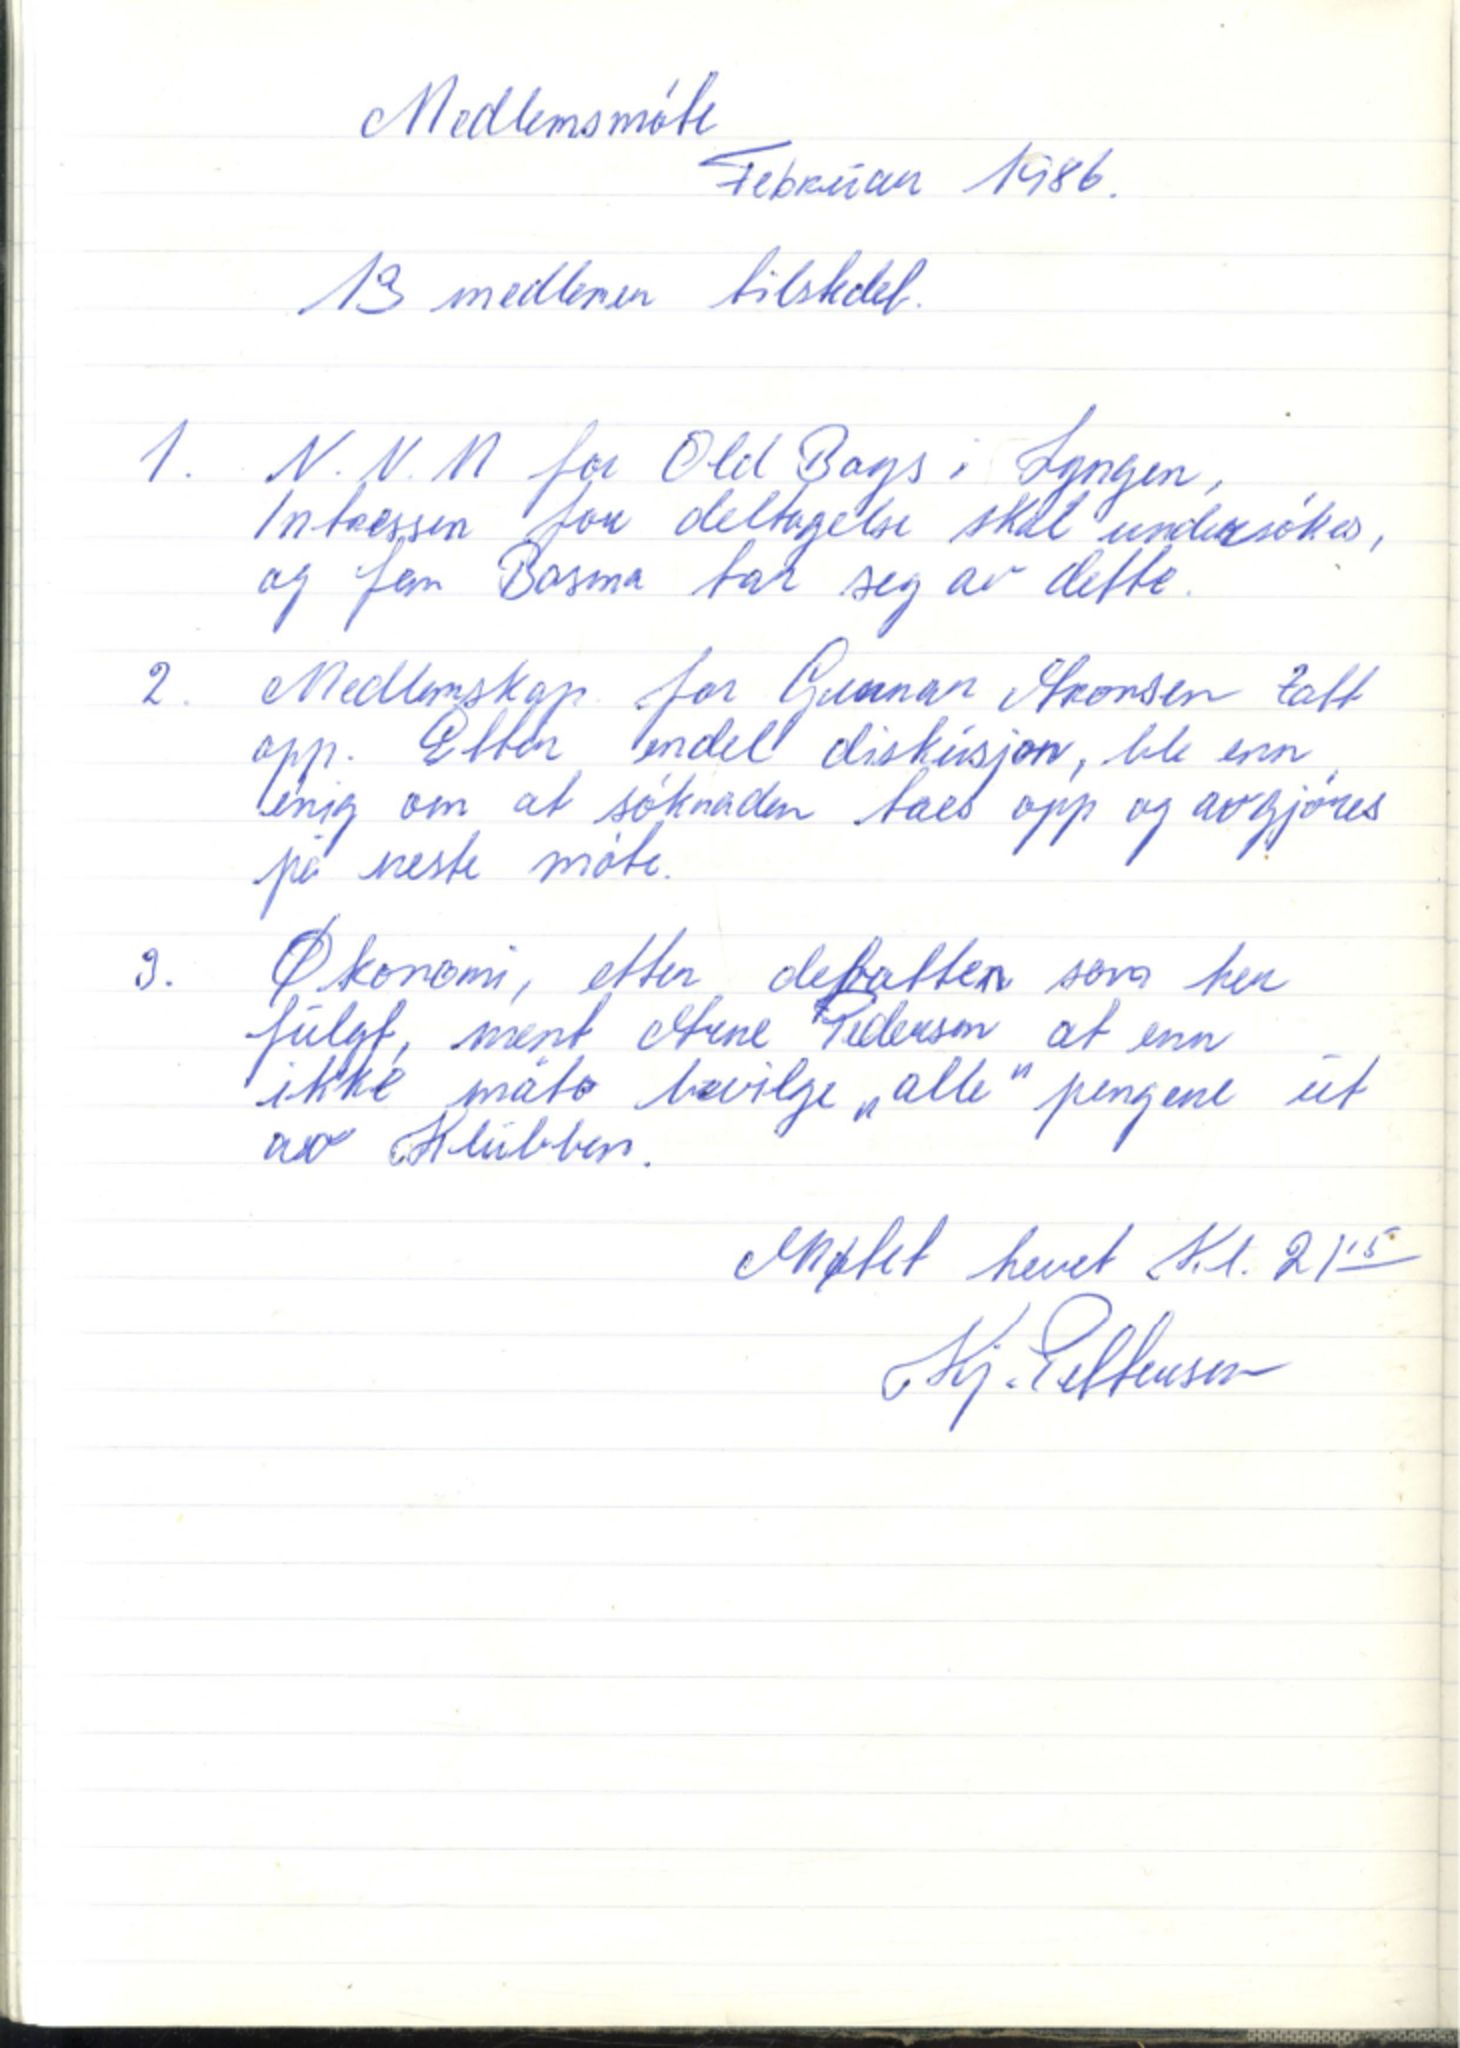 Medlemsmóte
Februar 1986.
13 medlemer tilstedet.
1. N.N.M for Old Boys i Lyngen,
Intressen for deltagelse skal undersókes,
og Jan Bosma tar seg av dette.
2. Medlemskap for Gunnar Aronsen tatt
opp. Etter endel diskusjon, ble enn
enig om at sóknaden taes opp og avgjóres
på neste móte.
3. Økonomi, etter debatten som her
fulgt, ment Arne Pedersen at enn
ikke måte bevilge „alle" pengene ut
av Klubben.
Møtet hevet Kl. 21¹⁵
Kj. Pettersen